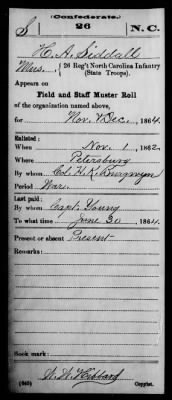 (Confederate.)
S 26 N.C.
H. A. Siddall
Mus., 26 Reg't North Carolina Infantry
(State Troops).
Appears on
Field and Staff Muster Roll
of the organization named above,
for Nov. & Dec., 1864.
Enlisted:
When Nov. 1, 1862.
Where Petersburg
By whom Col. H. K. Burgwyn
Period War.
Last paid:
By whom Capt. Young
To what time June 30, 1864.
Present or absent Present
Remarks:
Book mark:
W. W. Hibbard
Copyist.